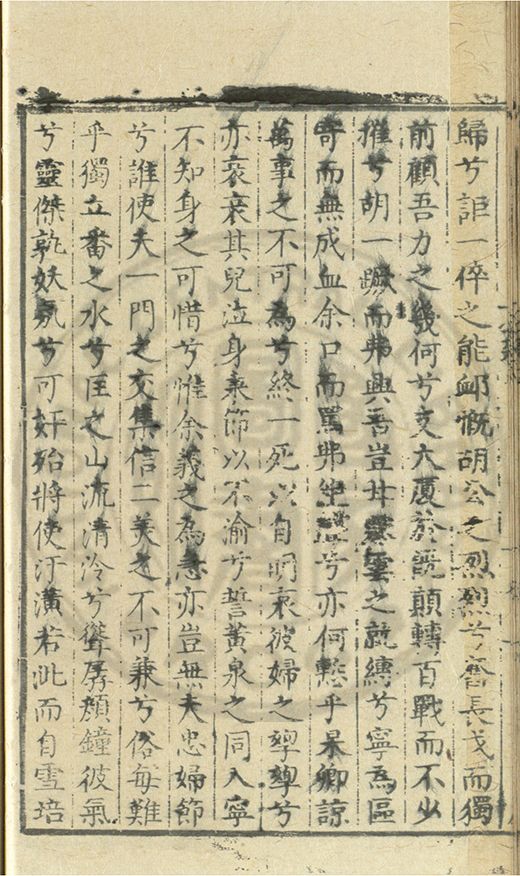 歸兮詎一倅之能䘏慨胡公之烈烈兮奮長戈而獨
前顧吾力之幾何兮支大厦於既顛轉百戰而不少
摧兮胡一蹶而弗興吾豈甘霽雲之就縛兮寧為區
寄而無成血余口而罵弗絶兮亦何慙乎杲卿諒
萬事之不可為兮終一死以自明哀彼婦之孿孿兮
亦哀哀其兒泣身秉節以不渝兮誓黃泉之同入寧
不知身之可惜兮惟余義之為急亦豈無夫忠婦節
兮誰使夫一門之交集信二美之不可兼兮俗每難
乎獨立番之水兮匡之山流清泠兮聳孱顏鐘彼氣
兮靈傑孰妖氛兮可奸殆將使汙潢若沘而自雪培